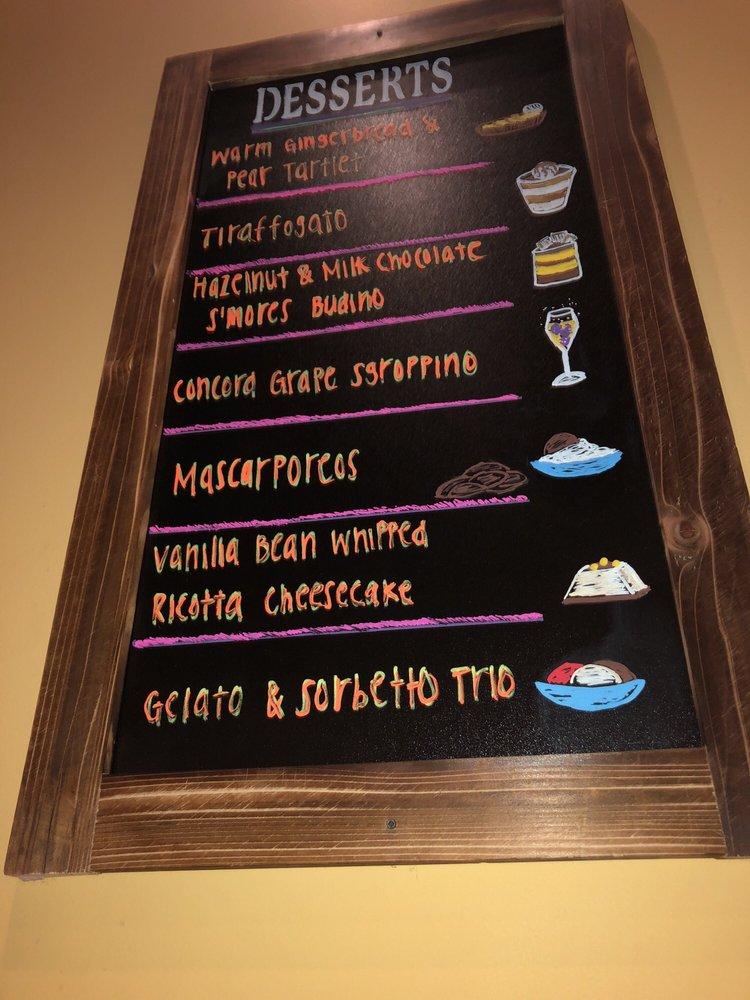 DESSERTS
Warm Gingerbread &
Pear Tartlet
Tiraffogato
Hazelnut & Milk Chocolate
S'mores Budino
Concord Grape Sgroppino
Mascarporeos
Vanilla Bean Whipped
Ricotta Cheesecake
Gelato & Sorbetto Trio